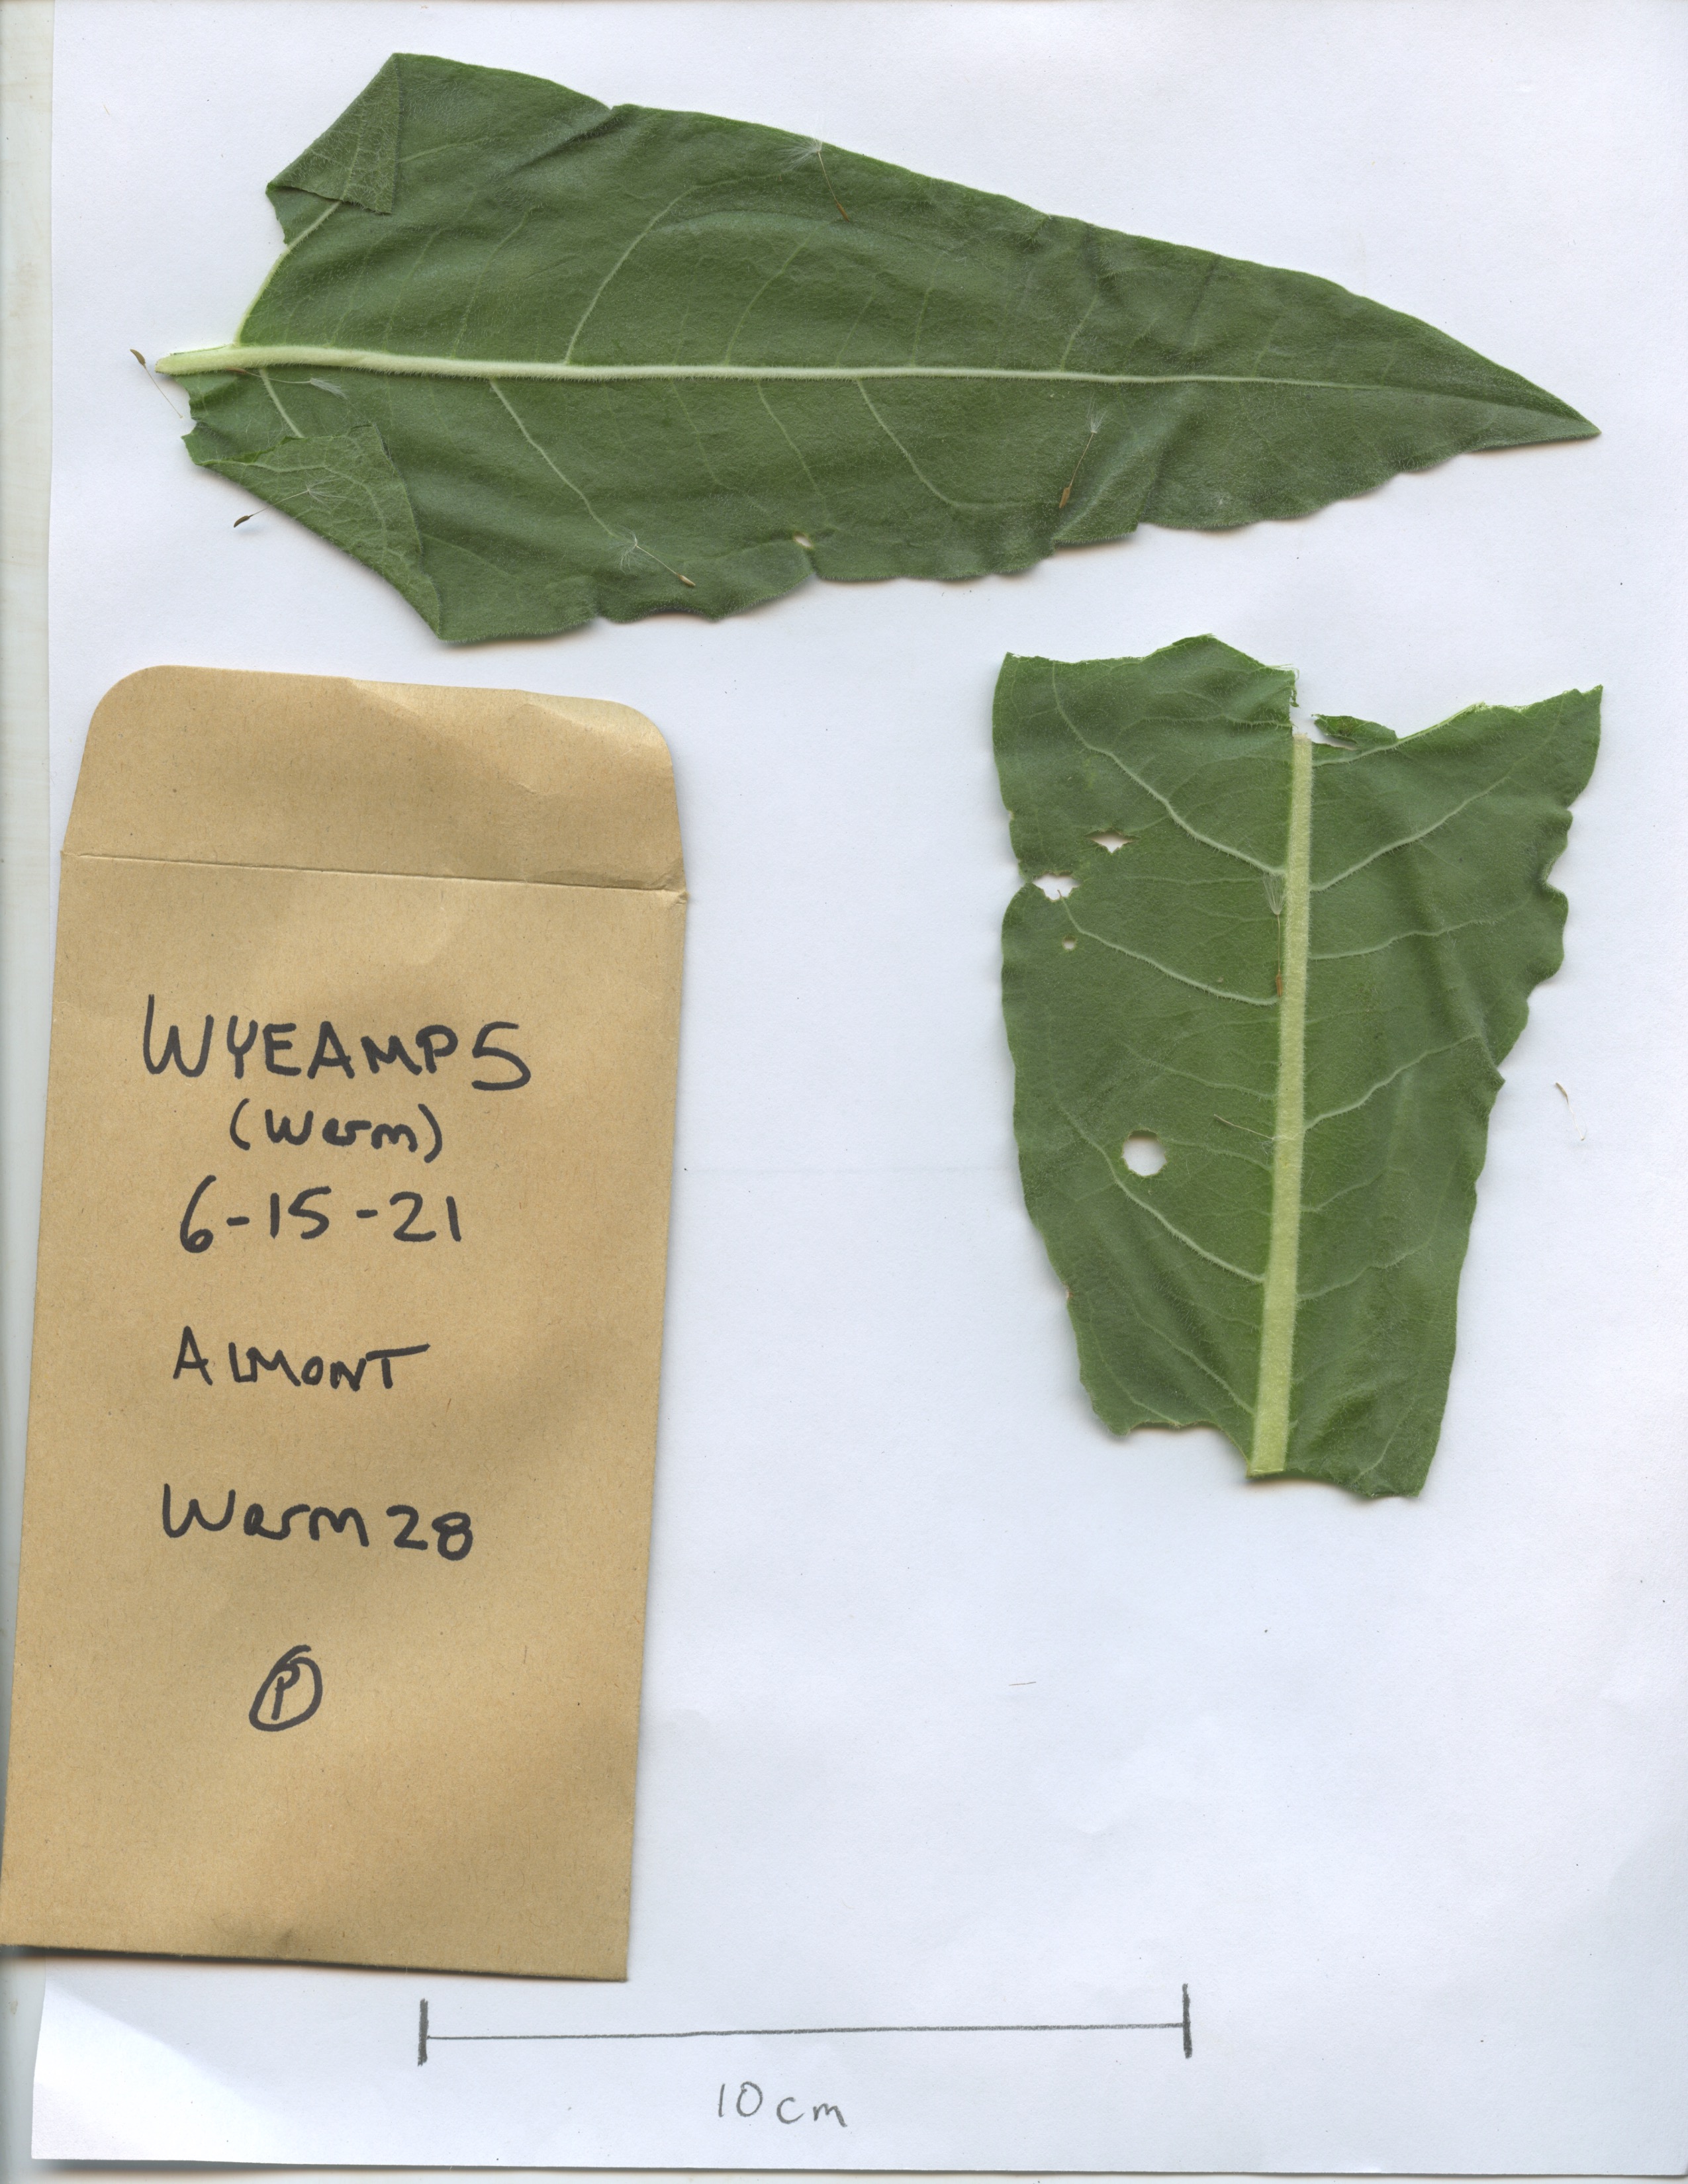 WYEAMP5
(Warm)
6-15-21
ALMONT
Warm 28
P
10cm